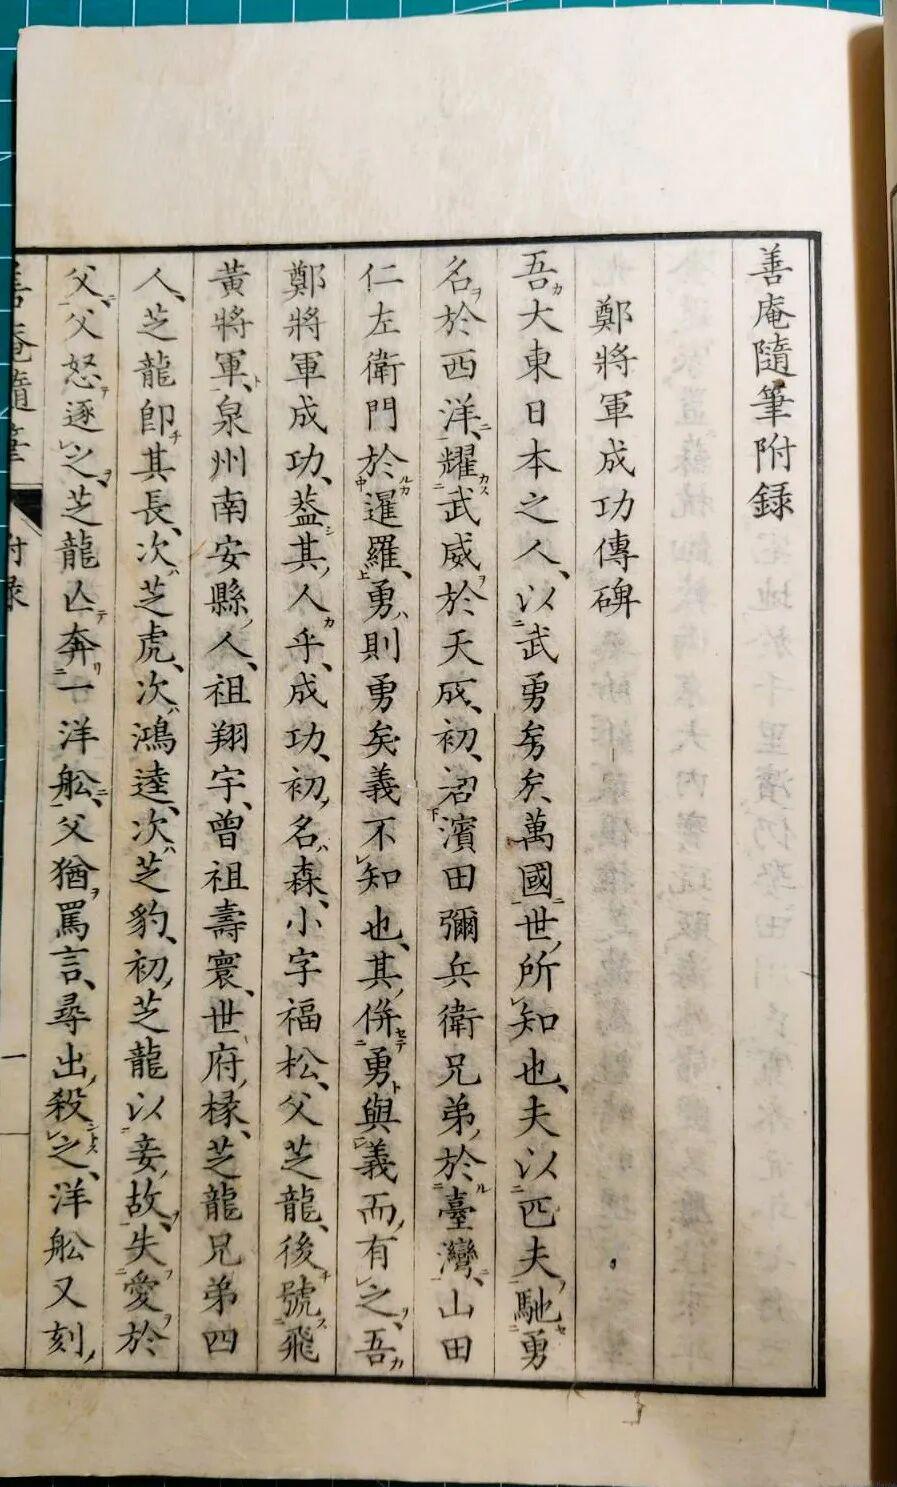 善庵隨筆附録
鄭將軍成功傳碑
吾大東日本之人、以武勇矣萬國世所知也、夫以匹夫馳勇
名於西洋、耀武威於天成、初、若濱田彌兵衛兄弟於臺灣、山田
仁左衛門於暹羅、勇則勇矣義不知也、其併勇與義而有之、吾
鄭將軍成功、葢其人乎、成功、初名森、小字福松、父芝龍、後號飛
黃將軍、泉州南安縣人、祖翔宇、曾祖壽寰、世府掾、芝龍兄弟四
人、芝龍卽其長、次芝虎、次鴻逵、次芝豹、初芝龍以妾故、失愛於
父、父怒逐之、芝龍亾奔一洋舩、父猶罵言、尋出殺之、洋舩又刻
善庵隨筆 附録 一